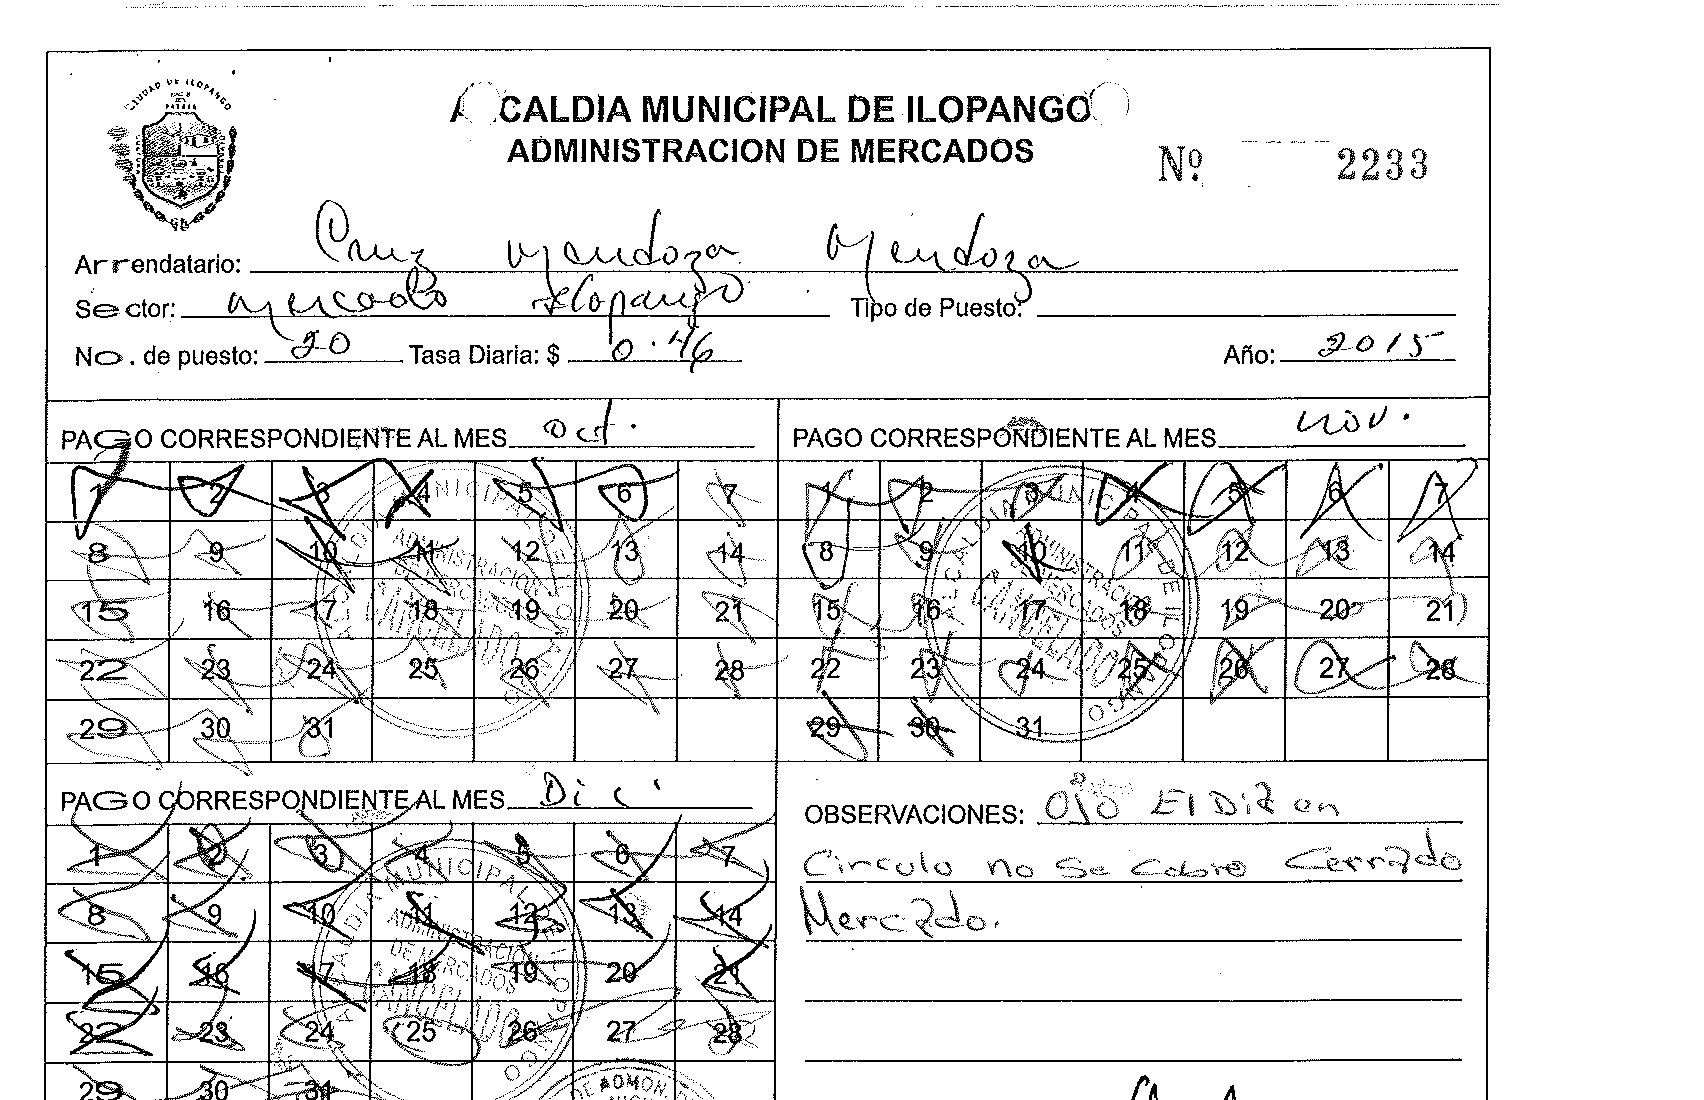 CIUDAD DE ILOPANGO
ALCALDIA MUNICIPAL DE ILOPANGO
ADMINISTRACION DE MERCADOS
Nº 2233
Arrendatario: Cruz Mendoza Mendoza
Sector: Mercado Ilopango Tipo de Puesto:
No. de puesto: 20 Tasa Diaria: $ 0.46 Año: 2015
PAGO CORRESPONDIENTE AL MES Oct. PAGO CORRESPONDIENTE AL MES Nov.
1 2 3 4 5 6 7 1 2 3 4 5 6 7
8 9 10 11 12 13 14 8 9 10 11 12 13 14
15 16 17 18 19 20 21 15 16 17 18 19 20 21
22 23 24 25 26 27 28 22 23 24 25 26 27 28
29 30 31 29 30 31
ALCALDIA MUNICIPAL DE ILOPANGO
ADMINISTRACION DE MERCADOS
CANCELADO
ALCALDIA MUNICIPAL DE ILOPANGO
ADMINISTRACION DE MERCADOS
CANCELADO
PAGO CORRESPONDIENTE AL MES Dic
1 2 3 4 5 6 7
8 9 10 11 12 13 14
15 16 17 18 19 20 21
22 23 24 25 26 27 28
29 30 31
ALCALDIA MUNICIPAL DE ILOPANGO
ADMINISTRACION DE MERCADOS
CANCELADO
DE ADMON
OBSERVACIONES: Ojo El Dia en
Circulo no Se Cobro Cerrado
Mercado.